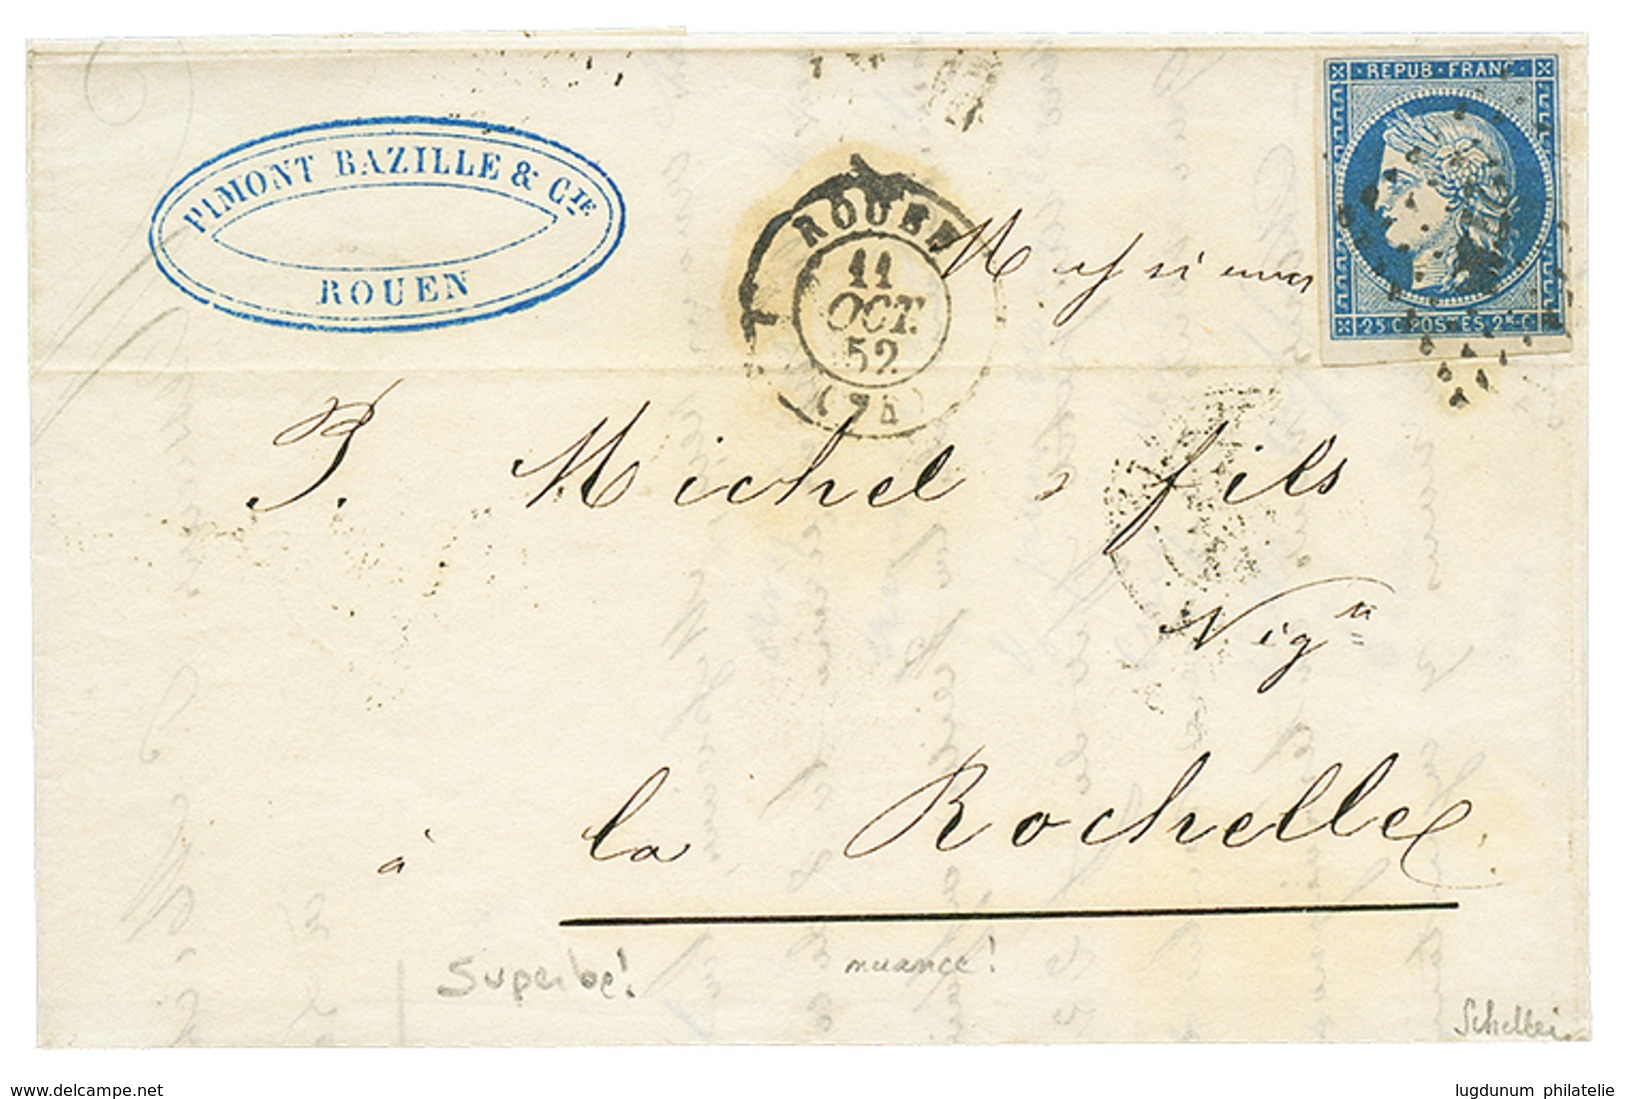 PIMONT BAZILLE & CIE
ROUEN
REPUB · FRANC
25 C POSTES 25 C
ROUEN
11
OCT.
52
(74)
Messieurs
P. Michel & fils
à la Rochelle
Superbe!
nuance!
www.delcampe.net
lugdunum philatelie